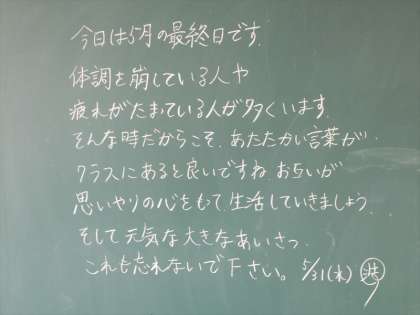 今日は5月の最終日です.
体調を崩している人や
疲れがたまっている人が多くいます.
そんな時だからこそ、あたたかい言葉が、
クラスにあると良いですね.お互いが
思いやりの心をもって生活していきましょう.
そして元気な大きなあいさつ.
これも忘れないで下さい。5/31(木)